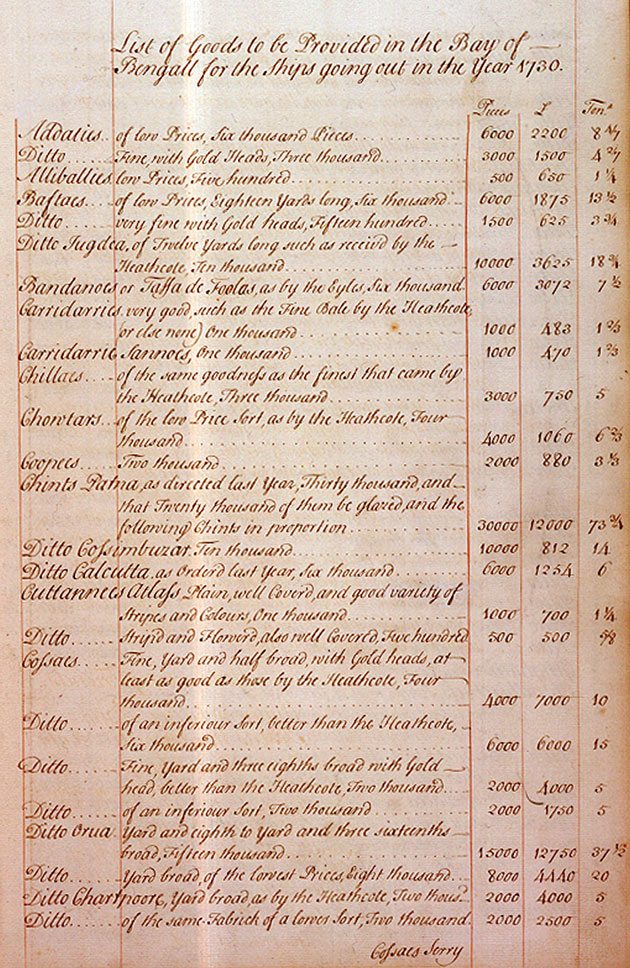 List of Goods to be Provided in the Bay of
Bengall for the Ships going out in the Year 1730.
Pieces £ Tons
Addaties of low Prices, Six thousand Pieces 6000 2200 8 4/7
Ditto Fine, with Gold Heads, Three thousand 3000 1500 4 2/7
Alliballies low Prices, Five hundred 500 650 1 1/4
Baftaes of low Prices, Eighteen Yards long, Six thousand 6000 1875 13 1/2
Ditto very fine with Gold heads, Fifteen hundred 1500 625 3 3/4
Ditto Jugdea, of Twelve Yards long such as receivd by the
Heathcote, Ten thousand 10000 3625 18 3/4
Bandanoes or Taffa de Foolas, as by the Eyles, Six thousand 6000 3072 7 1/2
Carridarries, very good, such as the Fine Bale by the Heathcote,
or else none) One thousand 1000 483 1 2/3
Carridarrie Sannoes, One thousand 1000 470 1 2/3
Chillaes of the same goodness as the finest that came by
the Heathcote, Three thousand 3000 750 5
Chowtars of the low Price Sort, as by the Heathcote, Four
thousand 4000 1060 6 2/3
Coopees Two thousand 2000 880 3 1/3
Chints Patna, as directed last Year, Thirty thousand, and
that Twenty thousand of them be glazed, and the
following Chints in proportion 30000 12000 73 3/4
Ditto Cossimbuzar Ten thousand 10000 812 14
Ditto Calcutta as Orderd last Year, Six thousand 6000 1254 6
Cuttannees Atlass Plain, well Coverd, and good variety of
Stripes and Colours, One thousand 1000 700 1 1/4
Ditto Stripd and Flowerd, also well Covered, Five hundred 500 500 5/8
Cossaes Fine, Yard and half broad, with Gold heads, at
least as good as those by the Heathcote, Four
thousand 4000 7000 10
Ditto of an inferiour Sort, better than the Heathcote,
Six thousand 6000 6000 15
Ditto Fine, Yard and three eighths broad with Gold
head, better than the Heathcote, Two thousand 2000 4000 5
Ditto of an inferiour Sort, Two thousand 2000 1750 5
Ditto Orua Yard and eighth to Yard and three sixteenths
broad, Fifteen thousand 15000 12750 37 1/2
Ditto Yard broad of the lowest Prices, Eight thousand 8000 4440 20
Ditto Chartpoore, Yard broad, as by the Heathcote, Two thous.d 2000 4000 5
Ditto of the same Fabrick of a lower Sort, Two thousand 2000 2500 5
Cossaes Serry